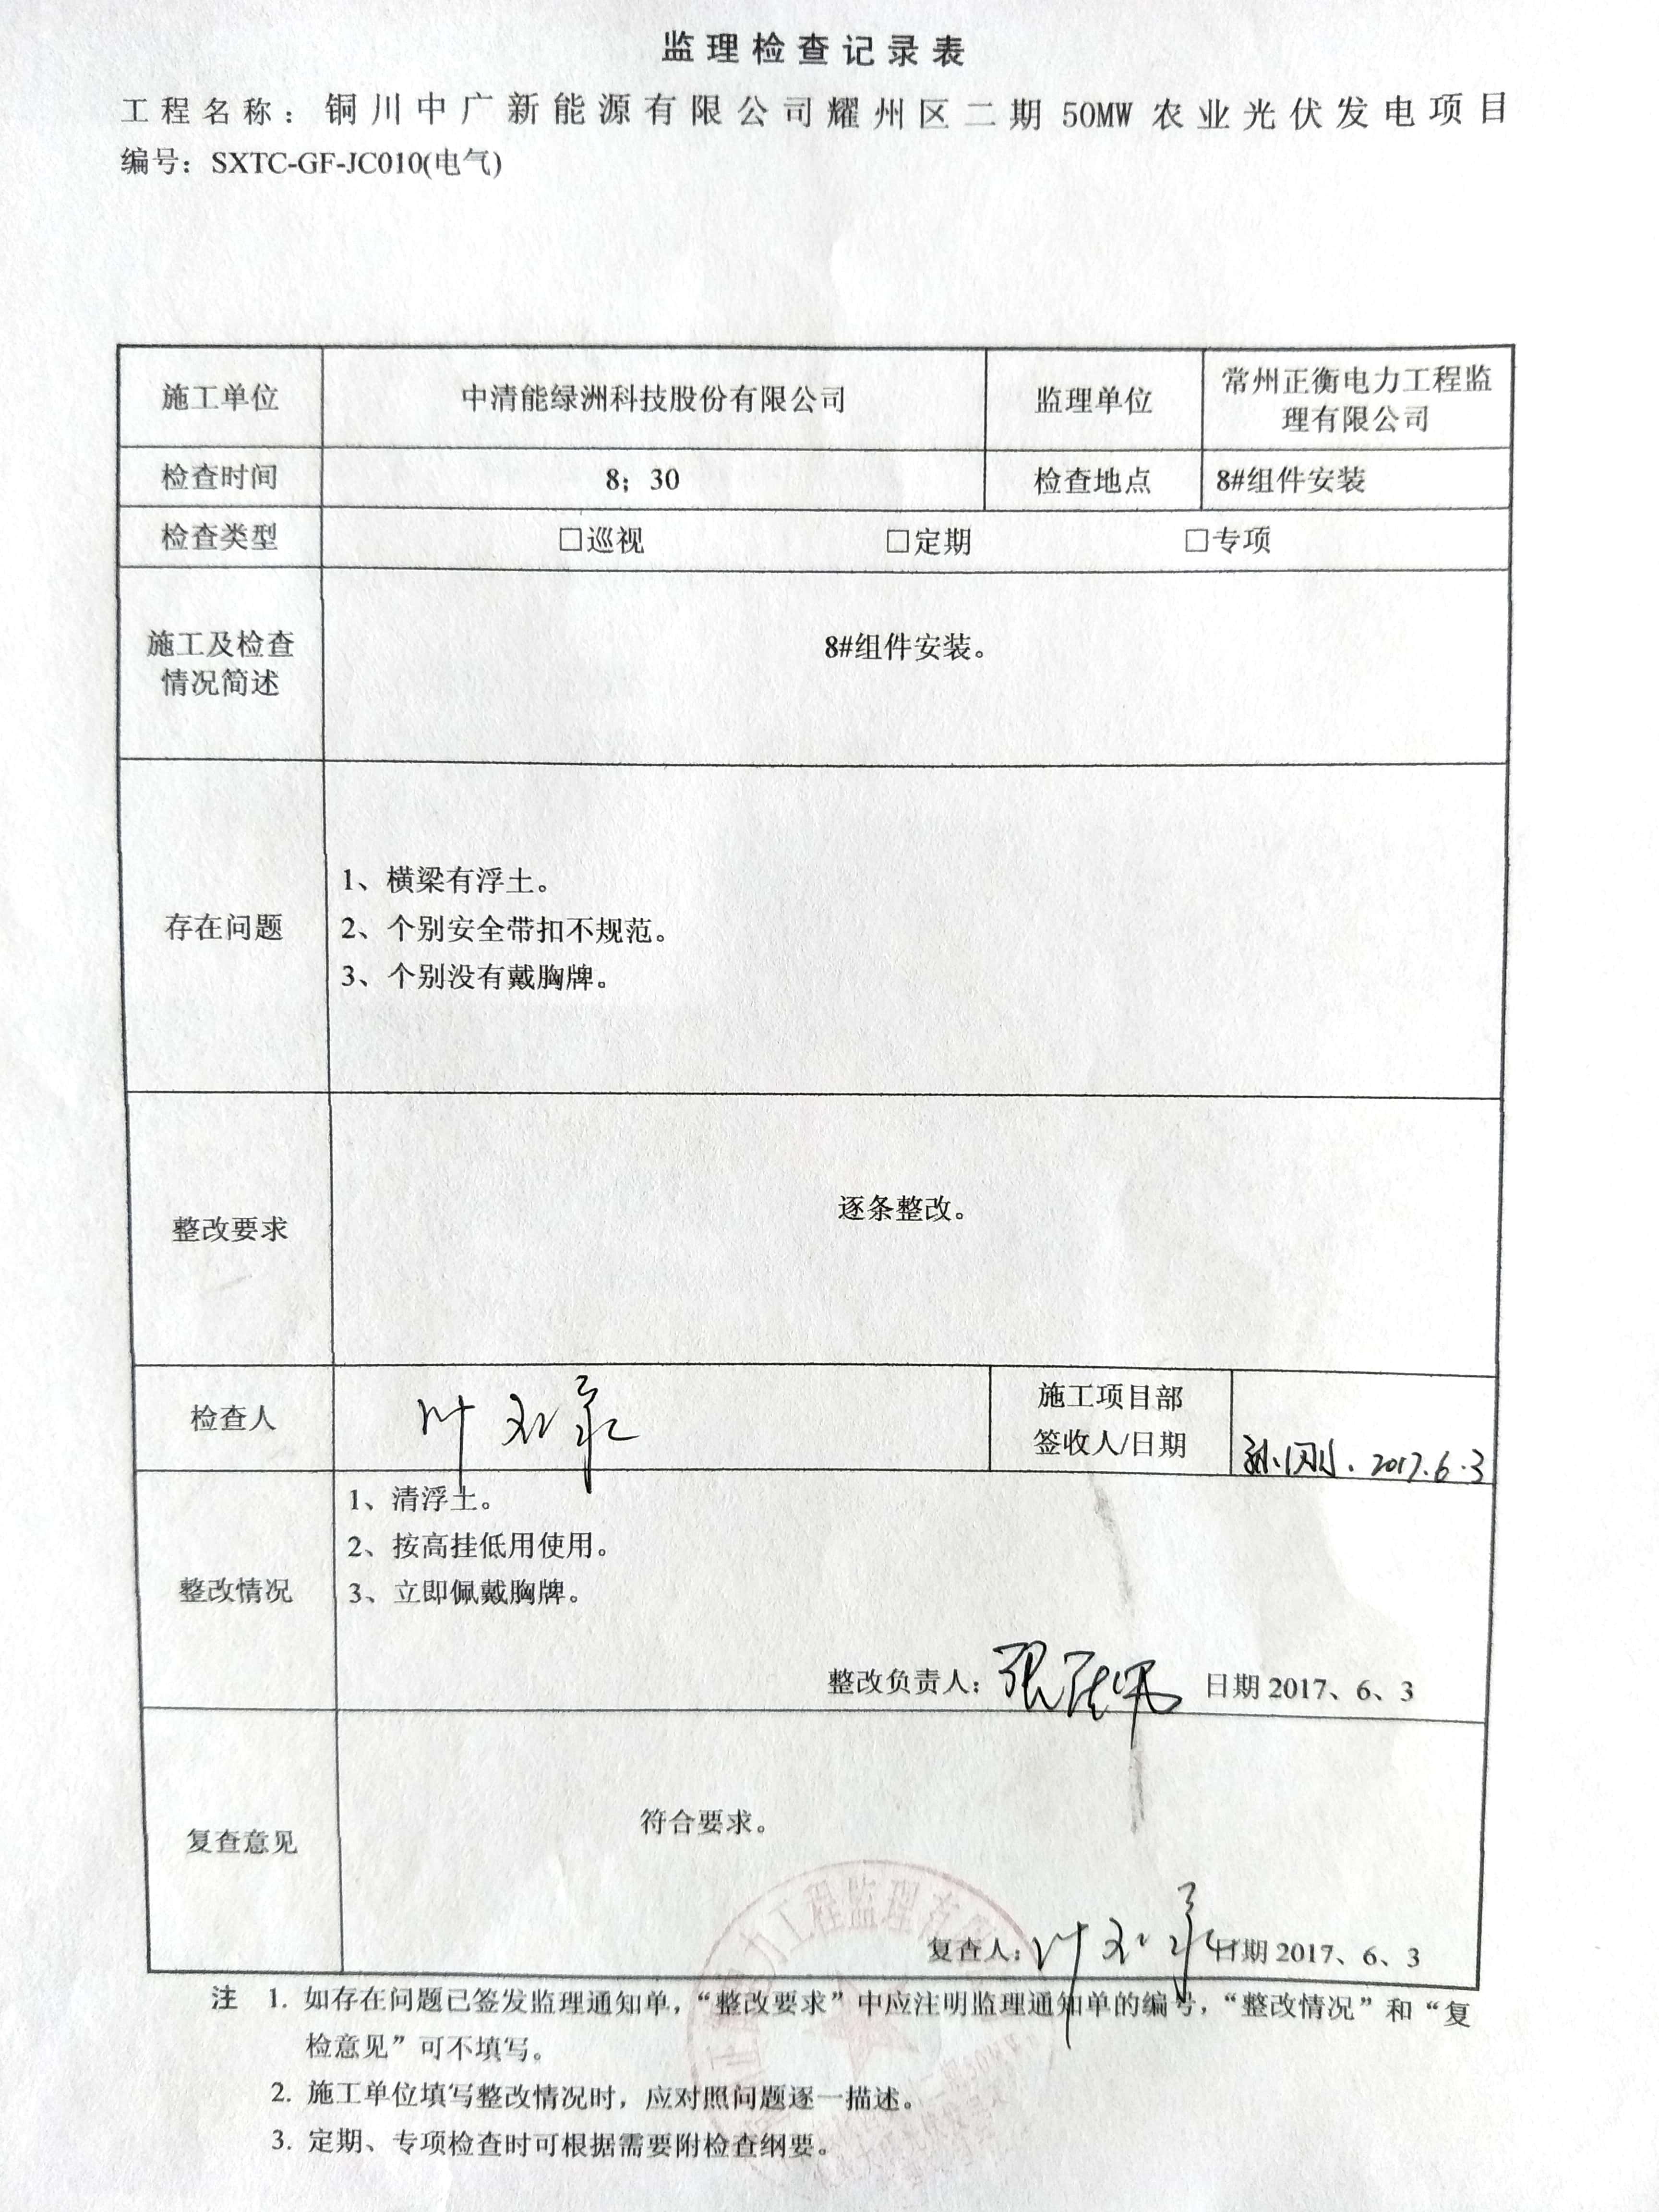 监理检查记录表
工程名称：铜川中广新能源有限公司耀州区二期50MW农业光伏发电项目
编号：SXTC-GF-JC010(电气)
施工单位 中清能绿洲科技股份有限公司 监理单位 常州正衡电力工程监
理有限公司
检查时间 8；30 检查地点 8#组件安装
检查类型 □巡视 □定期 □专项
施工及检查
情况简述
8#组件安装。
存在问题
1、横梁有浮土。
2、个别安全带扣不规范。
3、个别没有戴胸牌。
整改要求
逐条整改。
检查人
施工项目部
签收人/日期
2017.6.3
整改情况
1、清浮土。
2、按高挂低用使用。
3、立即佩戴胸牌。
整改负责人： 日期 2017、6、3
复查意见
符合要求。
复查人： 日期 2017、6、3
力工程监理有限
注 1. 如存在问题已签发监理通知单，“整改要求”中应注明监理通知单的编号，“整改情况”和“复
检意见”可不填写。
2. 施工单位填写整改情况时，应对照问题逐一描述。
3. 定期、专项检查时可根据需要附检查纲要。